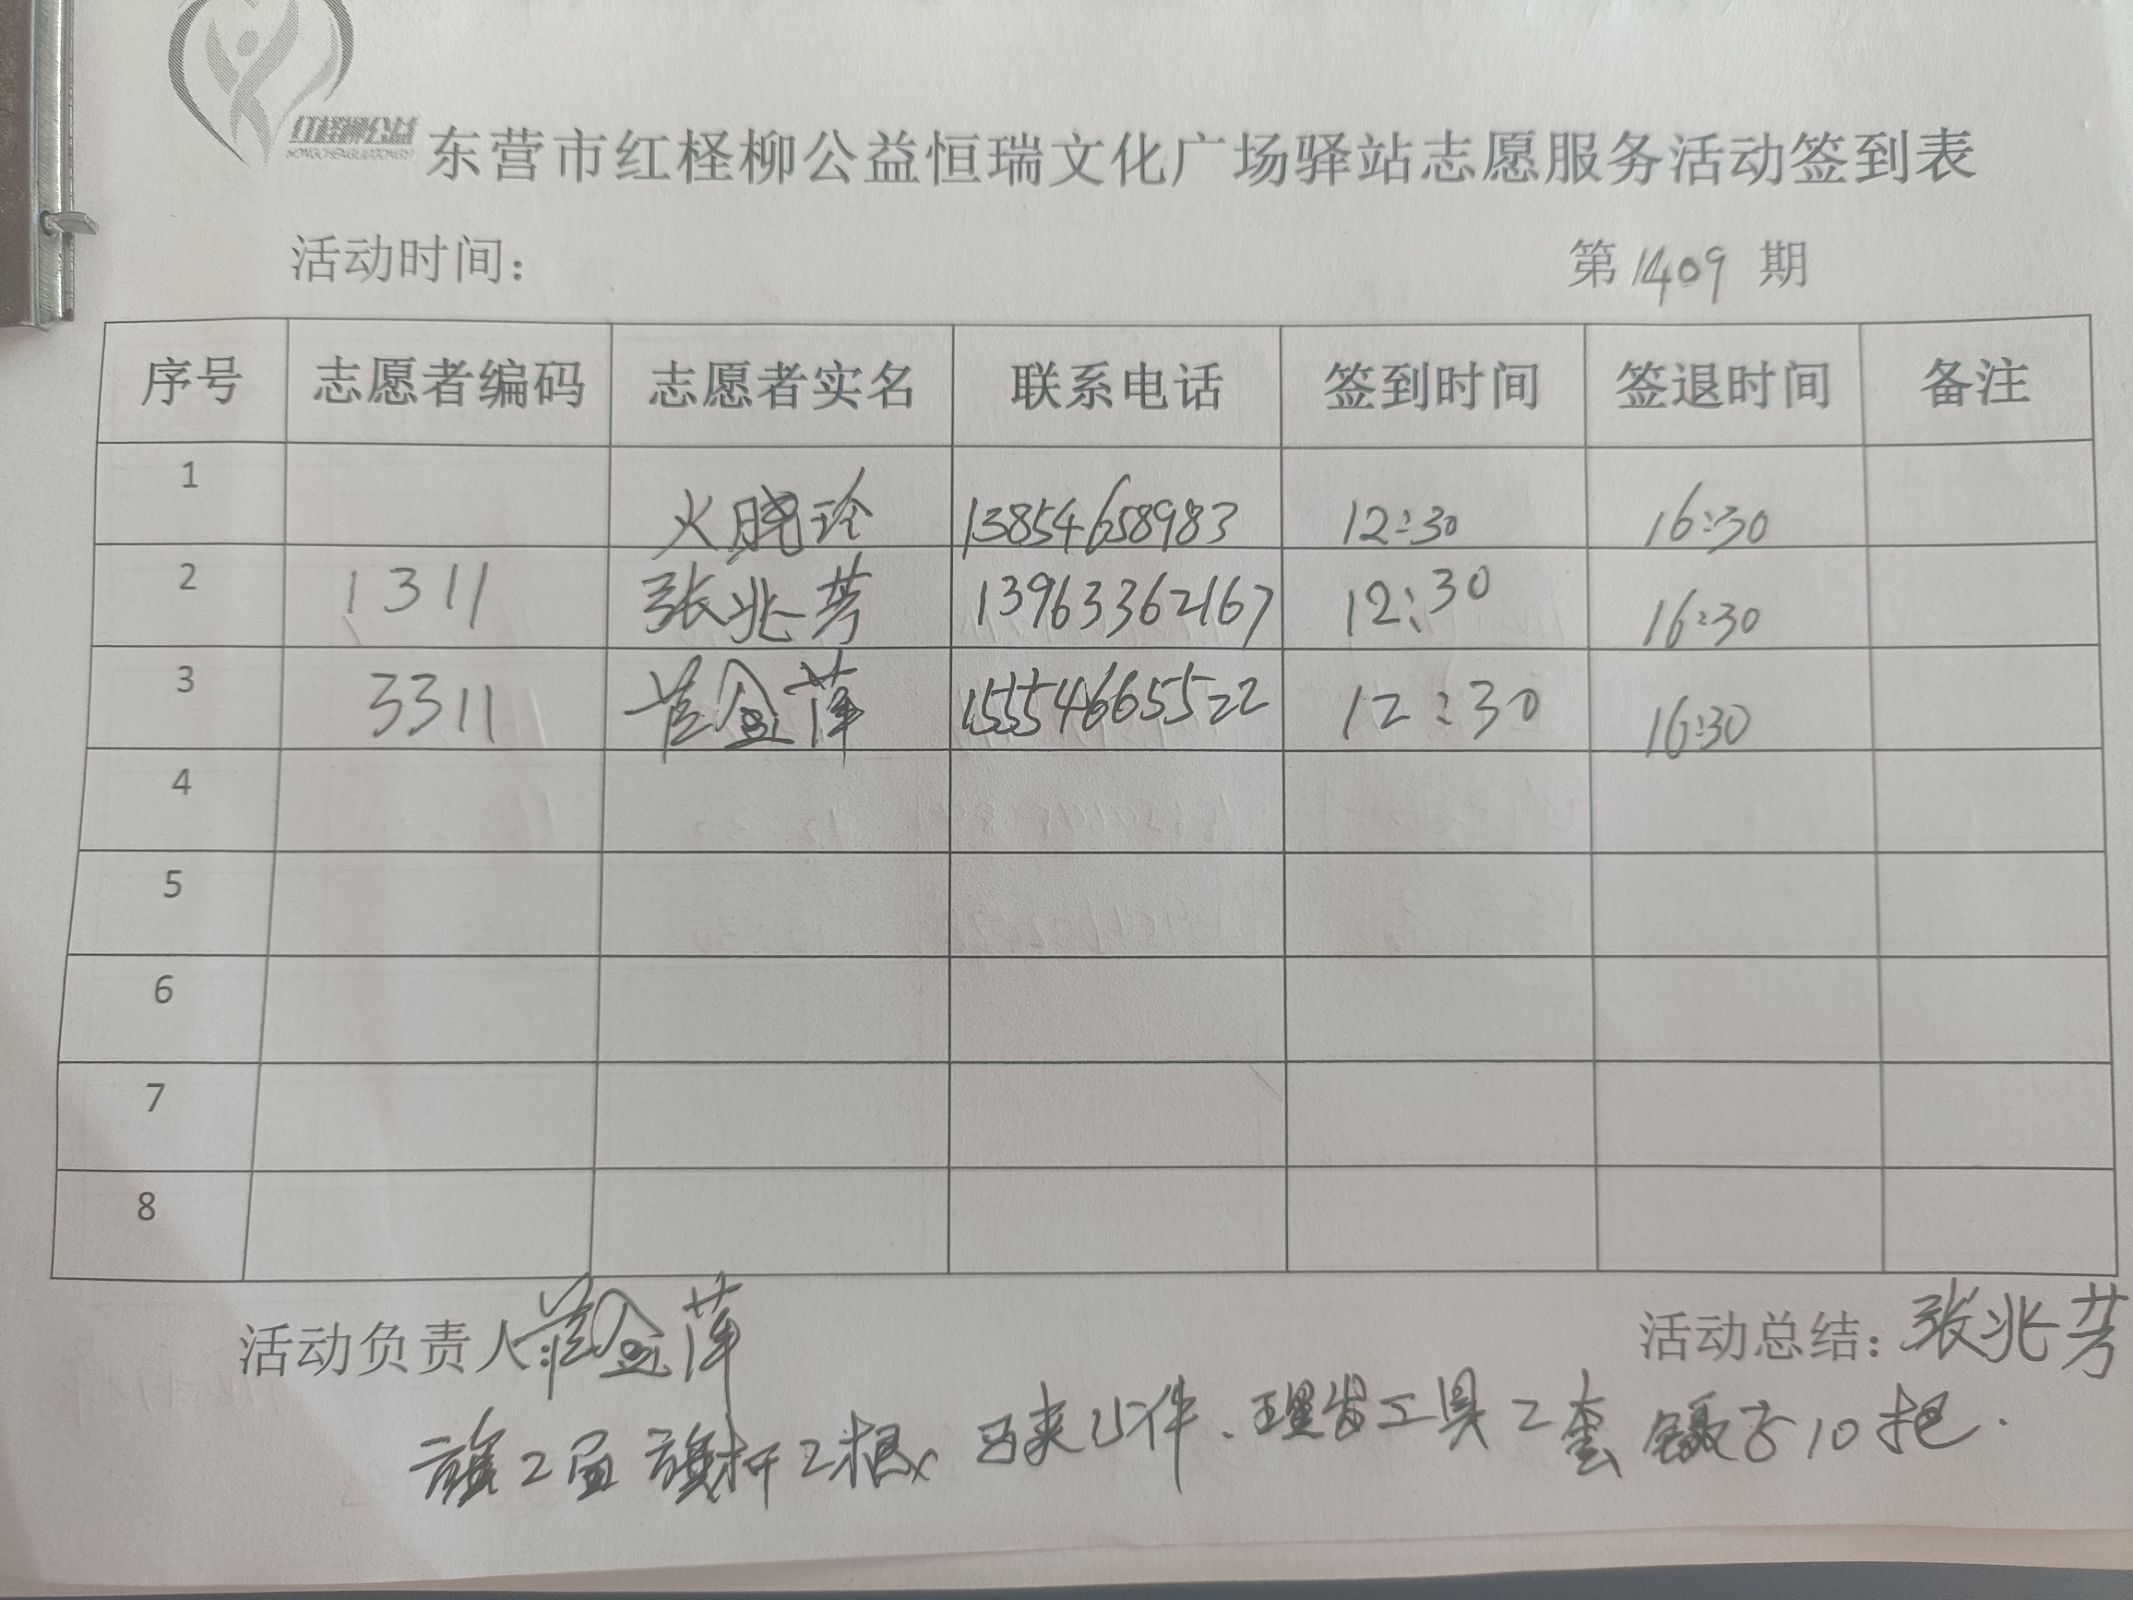 红柽柳公益
东营市红柽柳公益恒瑞文化广场驿站志愿服务活动签到表
活动时间： 第1409期
序号 志愿者编码 志愿者实名 联系电话 签到时间 签退时间 备注
1 火晓玲 13854658983 12:30 16:30
2 1311 张兆芳 13963362167 12:30 16:30
3 3311 金萍 15554665522 12:30 16:30
4
5
6
7
8
活动负责人: 金萍 活动总结: 张兆芳
旗2面 旗杆2根、马夹15件、理发工具2套 镊子10把.